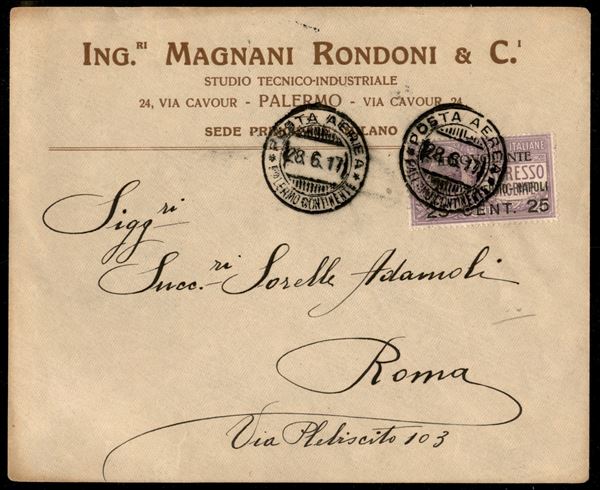 ING.RI MAGNANI RONDONI & C.I
STUDIO TECNICO-INDUSTRIALE
24, VIA CAVOUR - PALERMO - VIA CAVOUR, 24
SEDE MILANO
* POSTA AEREA *
28.6.17
PALERMO CONTINENTE
* POSTA AEREA *
28.6.17
ITALIANE
25 CENT. 25
Sigg.ri
Succ.ri Sorelle Adamoli
Roma
Via Plebiscito 103